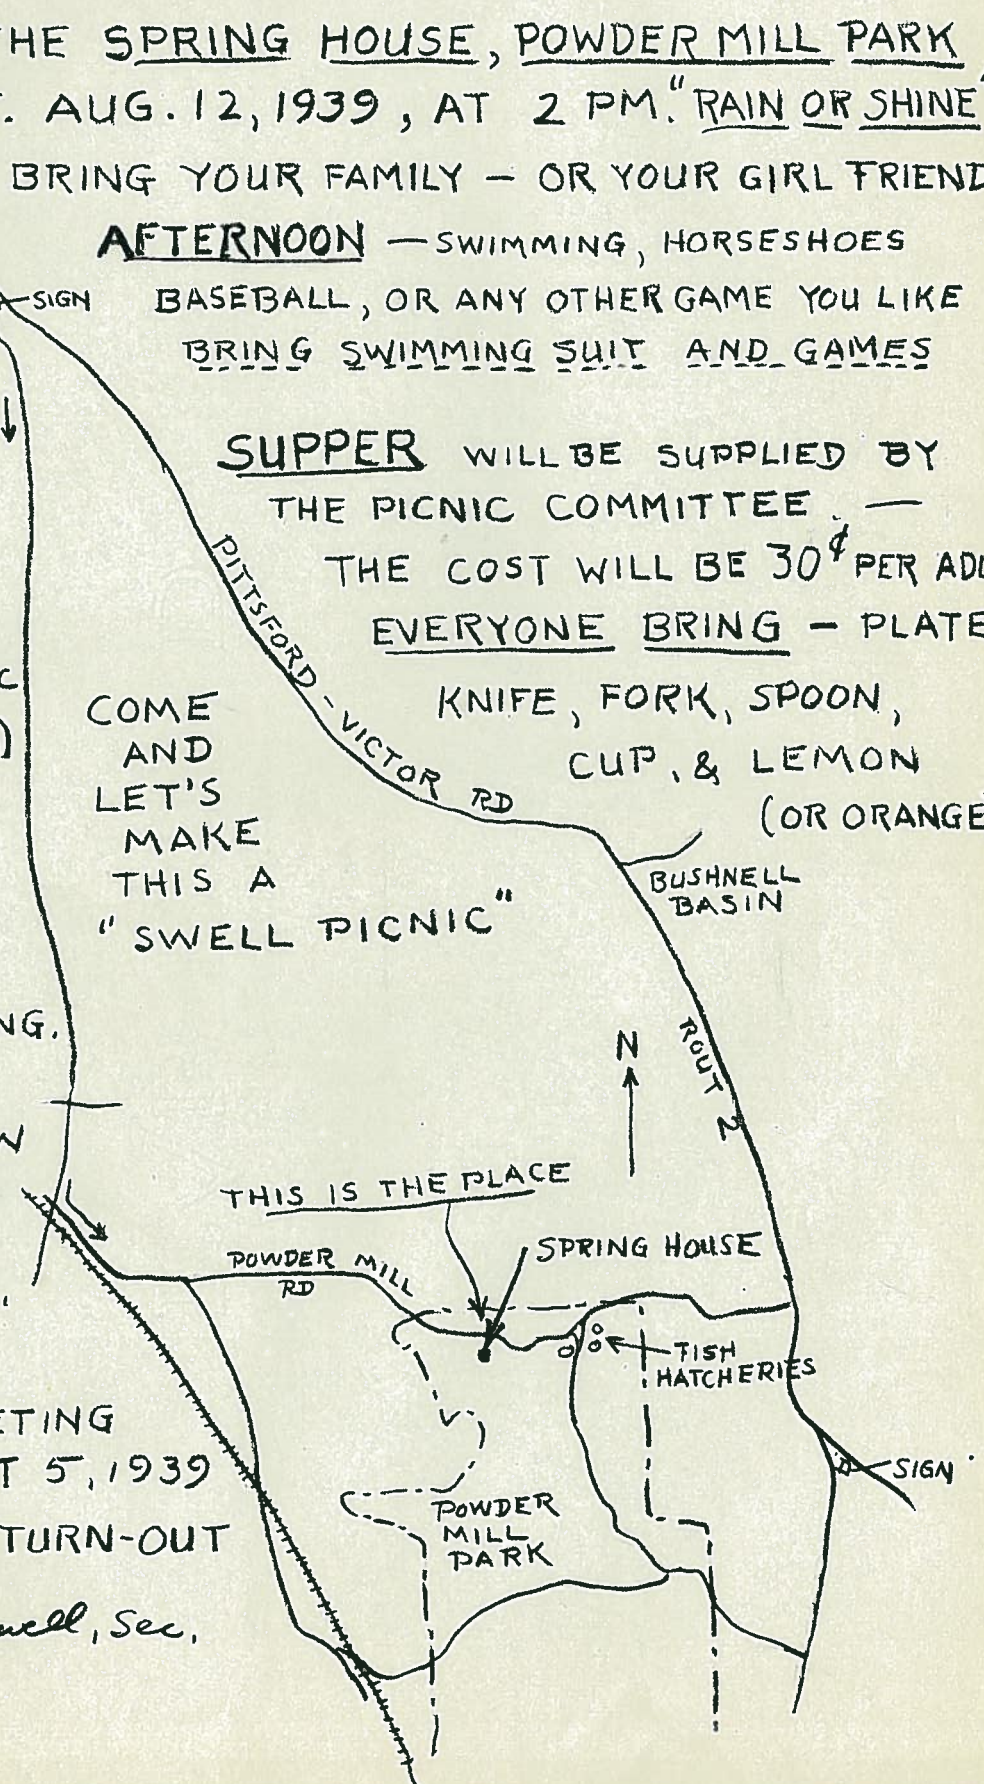 THE SPRING HOUSE, POWDER MILL PARK
. AUG. 12, 1939, AT 2 PM. "RAIN OR SHINE"
BRING YOUR FAMILY — OR YOUR GIRL FRIEND
AFTERNOON — SWIMMING, HORSESHOES
SIGN
BASEBALL, OR ANY OTHER GAME YOU LIKE
BRING SWIMMING SUIT AND GAMES
SUPPER WILL BE SUPPLIED BY
THE PICNIC COMMITTEE. —
THE COST WILL BE 30¢ PER
EVERYONE BRING — PLATE
KNIFE, FORK, SPOON,
CUP, & LEMON
(OR ORANGE
PITTSFORD - VICTOR RD
COME
AND
LET'S
MAKE
THIS A
"SWELL PICNIC"
BUSHNELL
BASIN
NG.
N
ROUT 2
THIS IS THE PLACE
SPRING HOUSE
POWDER MILL
RD
TISH
HATCHERIES
ETING
T 5, 1939
SIGN
TURN-OUT
POWDER
MILL
PARK
well, Sec.